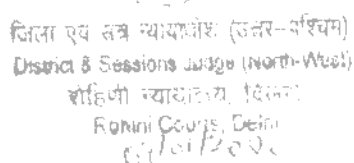 जिला एवं सत्र न्यायाधीश (उत्तर-पश्चिम)
District & Sessions Judge (North-West)
रोहिणी न्यायालय, दिल्ली
Rohini Courts, Delhi